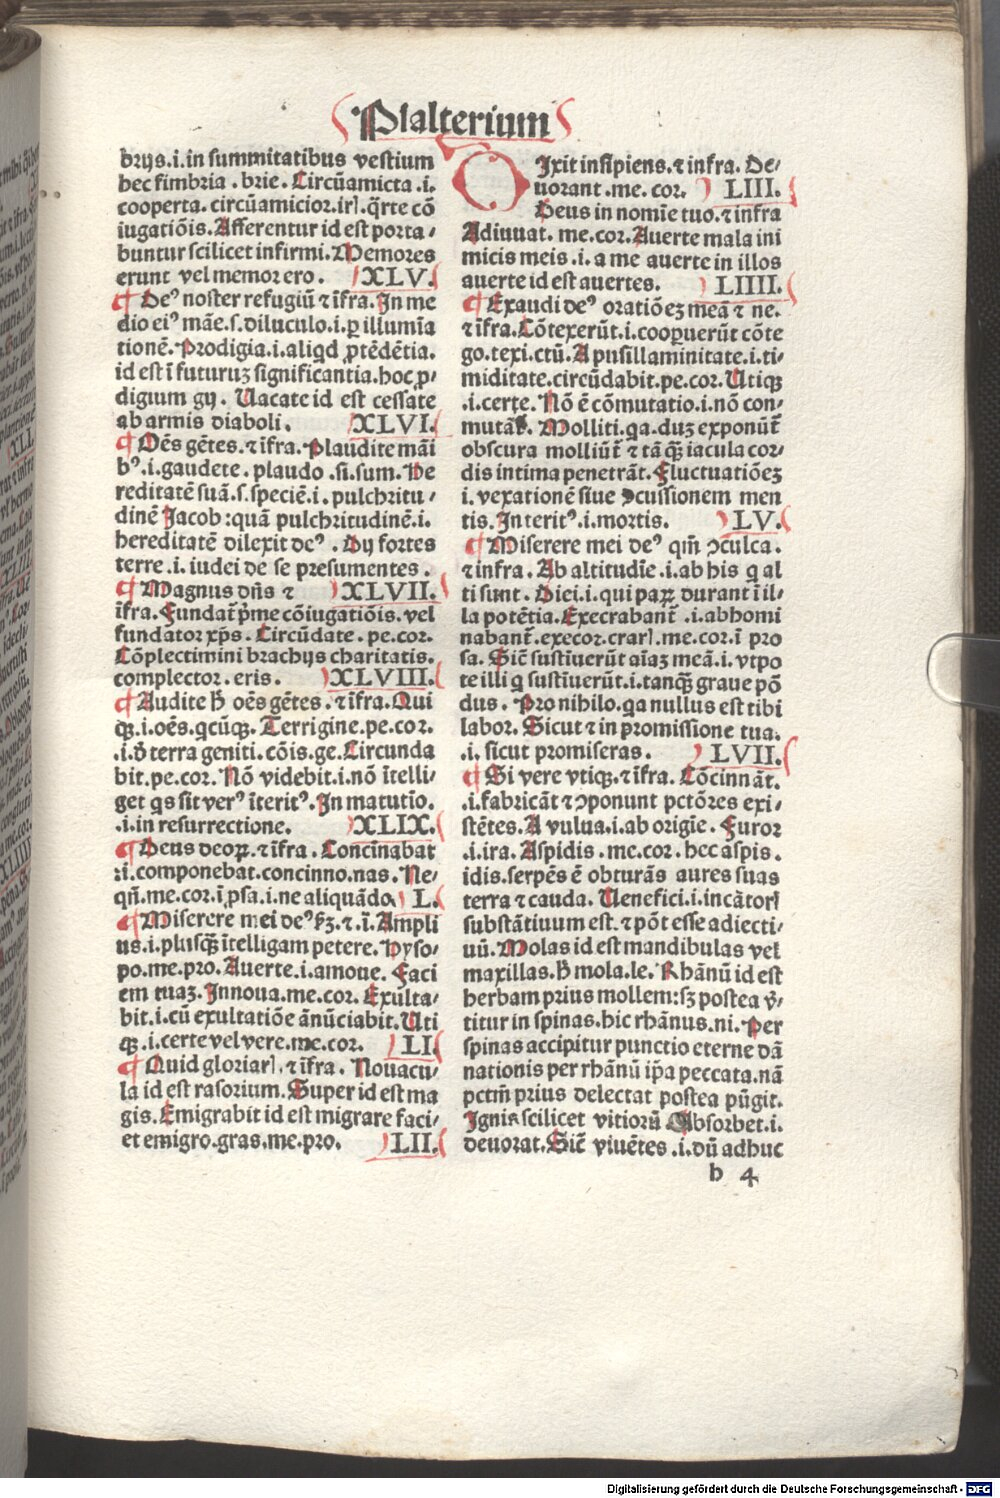 Psalterium
brijs.i.in summitatibus vestium
hec fimbria .brie. Circũamicta .i.
cooperta. circũamicior.irꝭ.q̈rte cõ
iugatiõis. Afferentur id est porta⸗
buntur scilicet infirmi. Memores
erunt vel memor ero. XLV.
¶ Deꝰ noster refugiũ ⁊ ĩfra. In me
dio eiꝰ mãe.s.diluculo.i.ꝑ illumĩa
tionẽ. Prodigia.i.aliqd ꝓtẽdẽtia.
id est ĩ futuruʒ significantia.hoc ꝓ⸗
digium gij. Uacate id est cessate
ab armis diaboli. XLVI.
¶ Oẽs gẽtes.⁊ ĩfra. Plaudite mãi
bꝰ.i.gaudete. plaudo .si.sum. He
reditatẽ suã.s.speciẽ.i. pulchritu⸗
dinẽ Jacob:quã pulchritudinẽ.i.
hereditatẽ dilexit deꝰ. Dij fortes
terre.i. iudei de se presumentes.
¶ Magnus dñs ⁊ XLVII.
ĩfra. Fundat᷑ p̃me cõiugatiõis. vel
fundator xp̃s. Circũdate. pe.cor.
Cõplectimini brachijs charitatis.
complector. eris. XLVIII.
¶ Audite h̃ oẽs gẽtes. ⁊ ĩfra. Qui
qꝫ.i.oẽs.qcũqꝫ. Terrigine.pe.cor.
.i.d̃ terra geniti. cõis.ge. Circunda
bit.pe.cor. Nõ videbit.i.nõ ĩtelli⸗
get qs sit verꝰ ĩteritꝰ. In matutĩo.
.i.in resurrectione. XLIX.
¶ Deus deoꝝ.⁊ ĩfra. Concĩnabat
.i.componebat.concinno.nas. Ne⸗
qñ.me.cor.ĩ psa.i.ne aliquãdo. L.
¶ Miserere mei deꝰ ẜʒ.⁊.ĩ. Ampli
us.i.plusqꝫ̃ ĩtelligam petere. Hyso⸗
po.me.pro. Auerte.i.amoue. Faci
em tuaʒ. Innoua.me.cor. Exulta⸗
bit.i.cũ exultatiõe ãnũciabit. Uti
qꝫ.i.certe vel vere.me.cor. LI.
¶ Quid gloriarꝭ.⁊ ĩfra. Nouacu⸗
la id est rasorium. Super id est ma
gis. Emigrabit id est migrare faci⸗
et emigro.gras.me.pro. LII.
DIxit insipiens.⁊ infra. De⸗
uorant .me. cor. LIII.
Deus in nomĩe tuo.⁊ infra
Adiuuat. me.cor. Auerte mala ini
micis meis.i. a me auerte in illos
auerte id est auertes. LIIII.
¶ Exaudi deꝰ oratiõeʒ meã ⁊ ne.
⁊ ĩfra. Cõtexerũt.i.cooperuerũt cõte
go.texi.ctũ. A pusillaminitate.i.ti⸗
miditate.circũdabit.pe.cor. Utiqꝫ
.i.certe. Nõ ẽ cõmutatio.i.nõ con⸗
mutãt. Molliti.qa.duʒ exponũt᷑
obscura molliũt᷑ ⁊ tãqꝫ̃ iacula cor⸗
dis intima penetrãt. Fluctuatiõeʒ
i. vexationẽ siue ꝯcussionem men
tis. Interitꝰ.i.mortis. LV.
¶ Miserere mei deꝰ qm̃ ꝯculca.
⁊ infra. Ab altitudĩe.i.ab his q al
ti sunt. Diei.i.qui paꝝ durant ĩ il⸗
la potẽtia. Execrabant᷑ .i.abhomi
nabant᷑.execor.crarꝭ.me.cor.ĩ pro
sa. Sic̃ sustĩuerũt aĩaʒ meã.i.vtpo
te illi q sustĩuerũt.i.tanqꝫ̃ graue põ
dus. Pro nihilo.qa nullus est tibi
labor. Sicut ⁊ in promissione tua.
.i. sicut promiseras. LVII.
¶ Si vere vtiqꝫ.⁊ ĩfra. Cõcinnãt.
.i.fabricãt ⁊ ꝯponunt pctõres exi⸗
stẽtes. A vulua.i.ab origĩe. Furor
.i.ira. Aspidis.me.cor.hec aspis.
idis.serpẽs ẽ obturãs aures suas
terra ⁊ cauda. Uenefici.i.incãtorꝭ
substãtiuum est.⁊ põt esse adiecti⸗
uũ. Molas id est mandibulas vel
maxillas.h̃ mola.le. Rhãnũ id est
herbam prius mollem:sʒ postea v̓⸗
titur in spinas.hic rhãnus.ni. Per
spinas accipitur punctio eterne dã
nationis per rhãnũ ip̃a peccata.nã
pctm̃ prius delectat postea pũgit.
Ignis scilicet vitiorũ Absorbet.i.
deuorat. Sic̃ viuẽtes .i.dũ adhuc
b 4
Digitalisierung gefördert durch die Deutsche Forschungsgemeinschaft - DFG